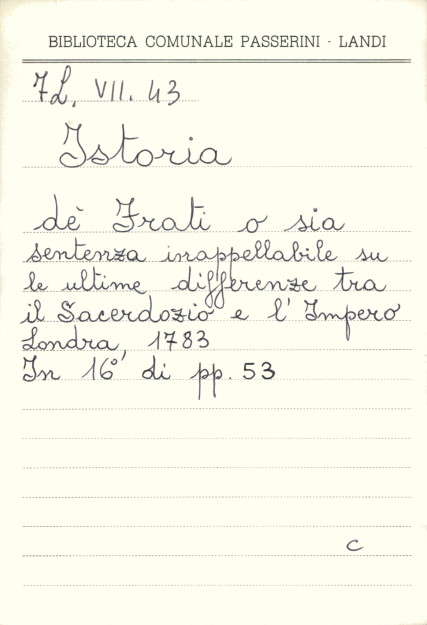 BIBLIOTECA COMUNALE PASSERINI - LANDI
7L. VII. 43
Istoria
dè Frati o sia
sentenza inappellabile su
le ultime differenze tra
il Sacerdozio e l' Impero
Londra, 1783
In 16° di pp. 53
c